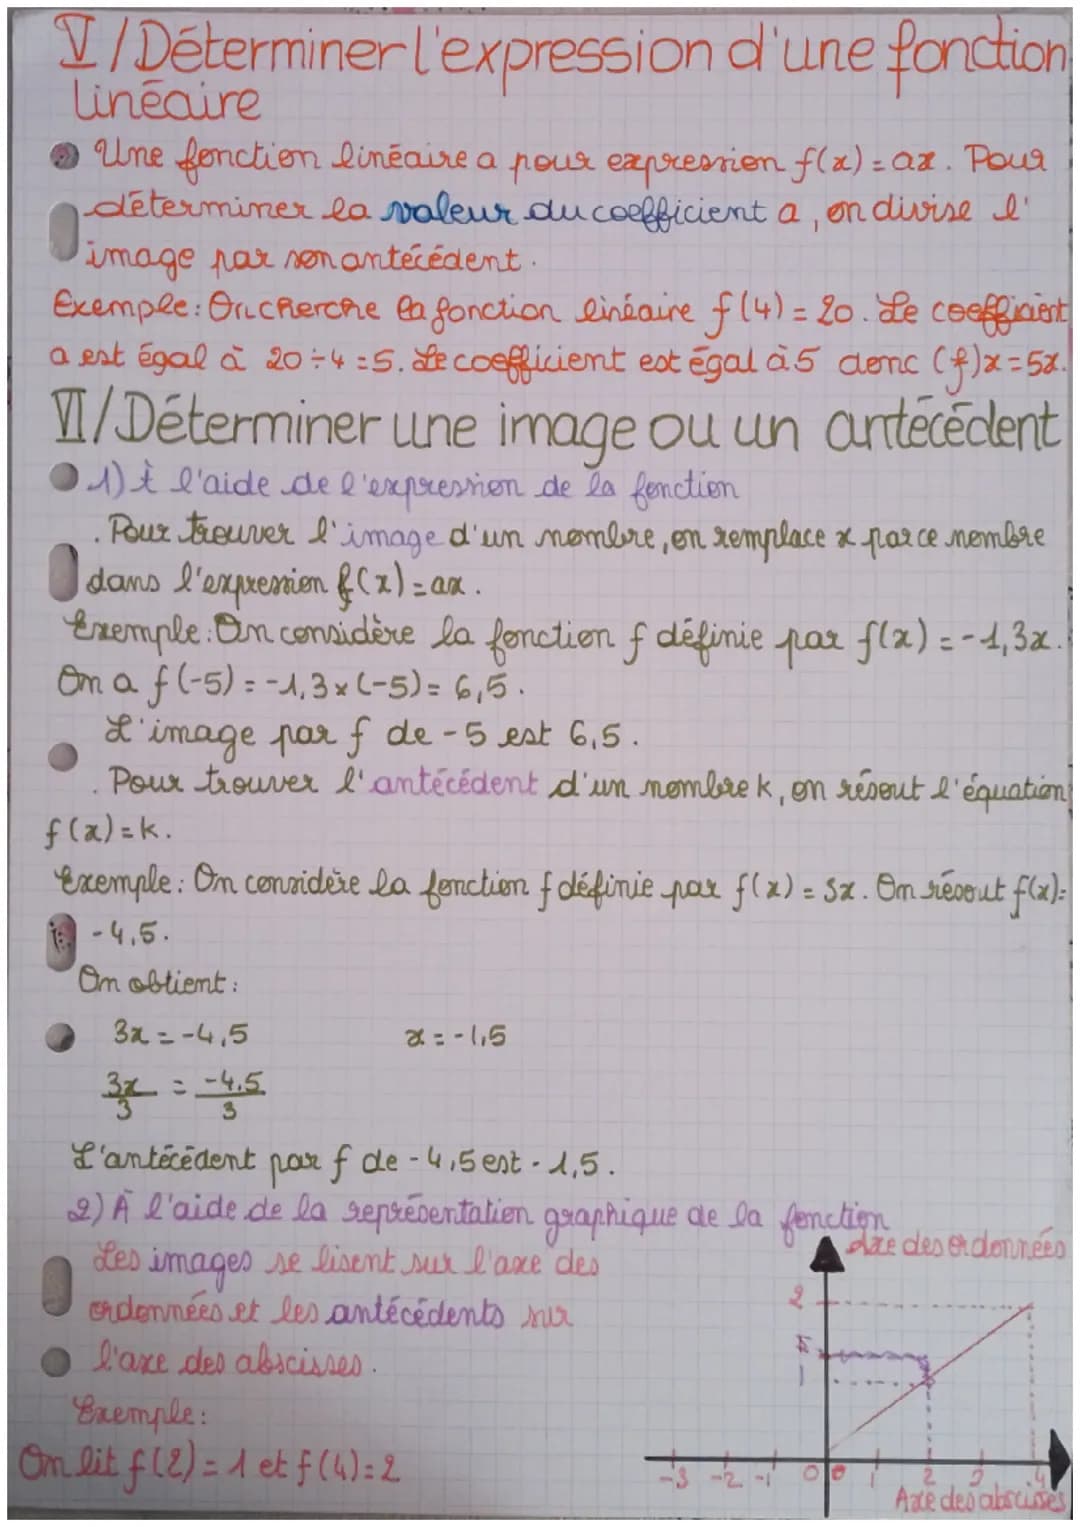 V/Déterminer l'expression d'une fonction
linéaire
Une fonction linéaire a pour expression f(x)=ax. Pour
déterminer la valeur du coefficient a, on divise l'
image par son antécédent.
Exemple: On cherche la fonction linéaire f(4)=20. Le coefficient
a est égal à 20÷4=5. Le coefficient est égal à 5 donc (f)x=5x.
VI/Déterminer une image ou un antécédent
1) À l'aide de l'expression de la fonction
. Pour trouver l'image d'un nombre, on remplace x par ce nombre
dans l'expression f(x)=ax.
Exemple: On considère la fonction f définie par f(x)=-1,3x.
On a f(-5)=-1,3×(-5)=6,5.
L'image par f de -5 est 6,5.
. Pour trouver l'antécédent d'un nombre k, on résout l'équation
f(x)=k.
Exemple: On considère la fonction f définie par f(x)=3x. On résout f(x)=
-4,5.
On obtient:
3x=-4,5 x=-1,5
3x/3 = -4,5/3
L'antécédent par f de -4,5 est -1,5.
2) À l'aide de la représentation graphique de la fonction
Axe des ordonnées
Les images se lisent sur l'axe des
ordonnées et les antécédents sur
l'axe des abscisses.
Exemple:
On lit f(2)=1 et f(4)=2
2
1
-3 -2 -1 0 0 1 2 3 4
Axe des abscisses